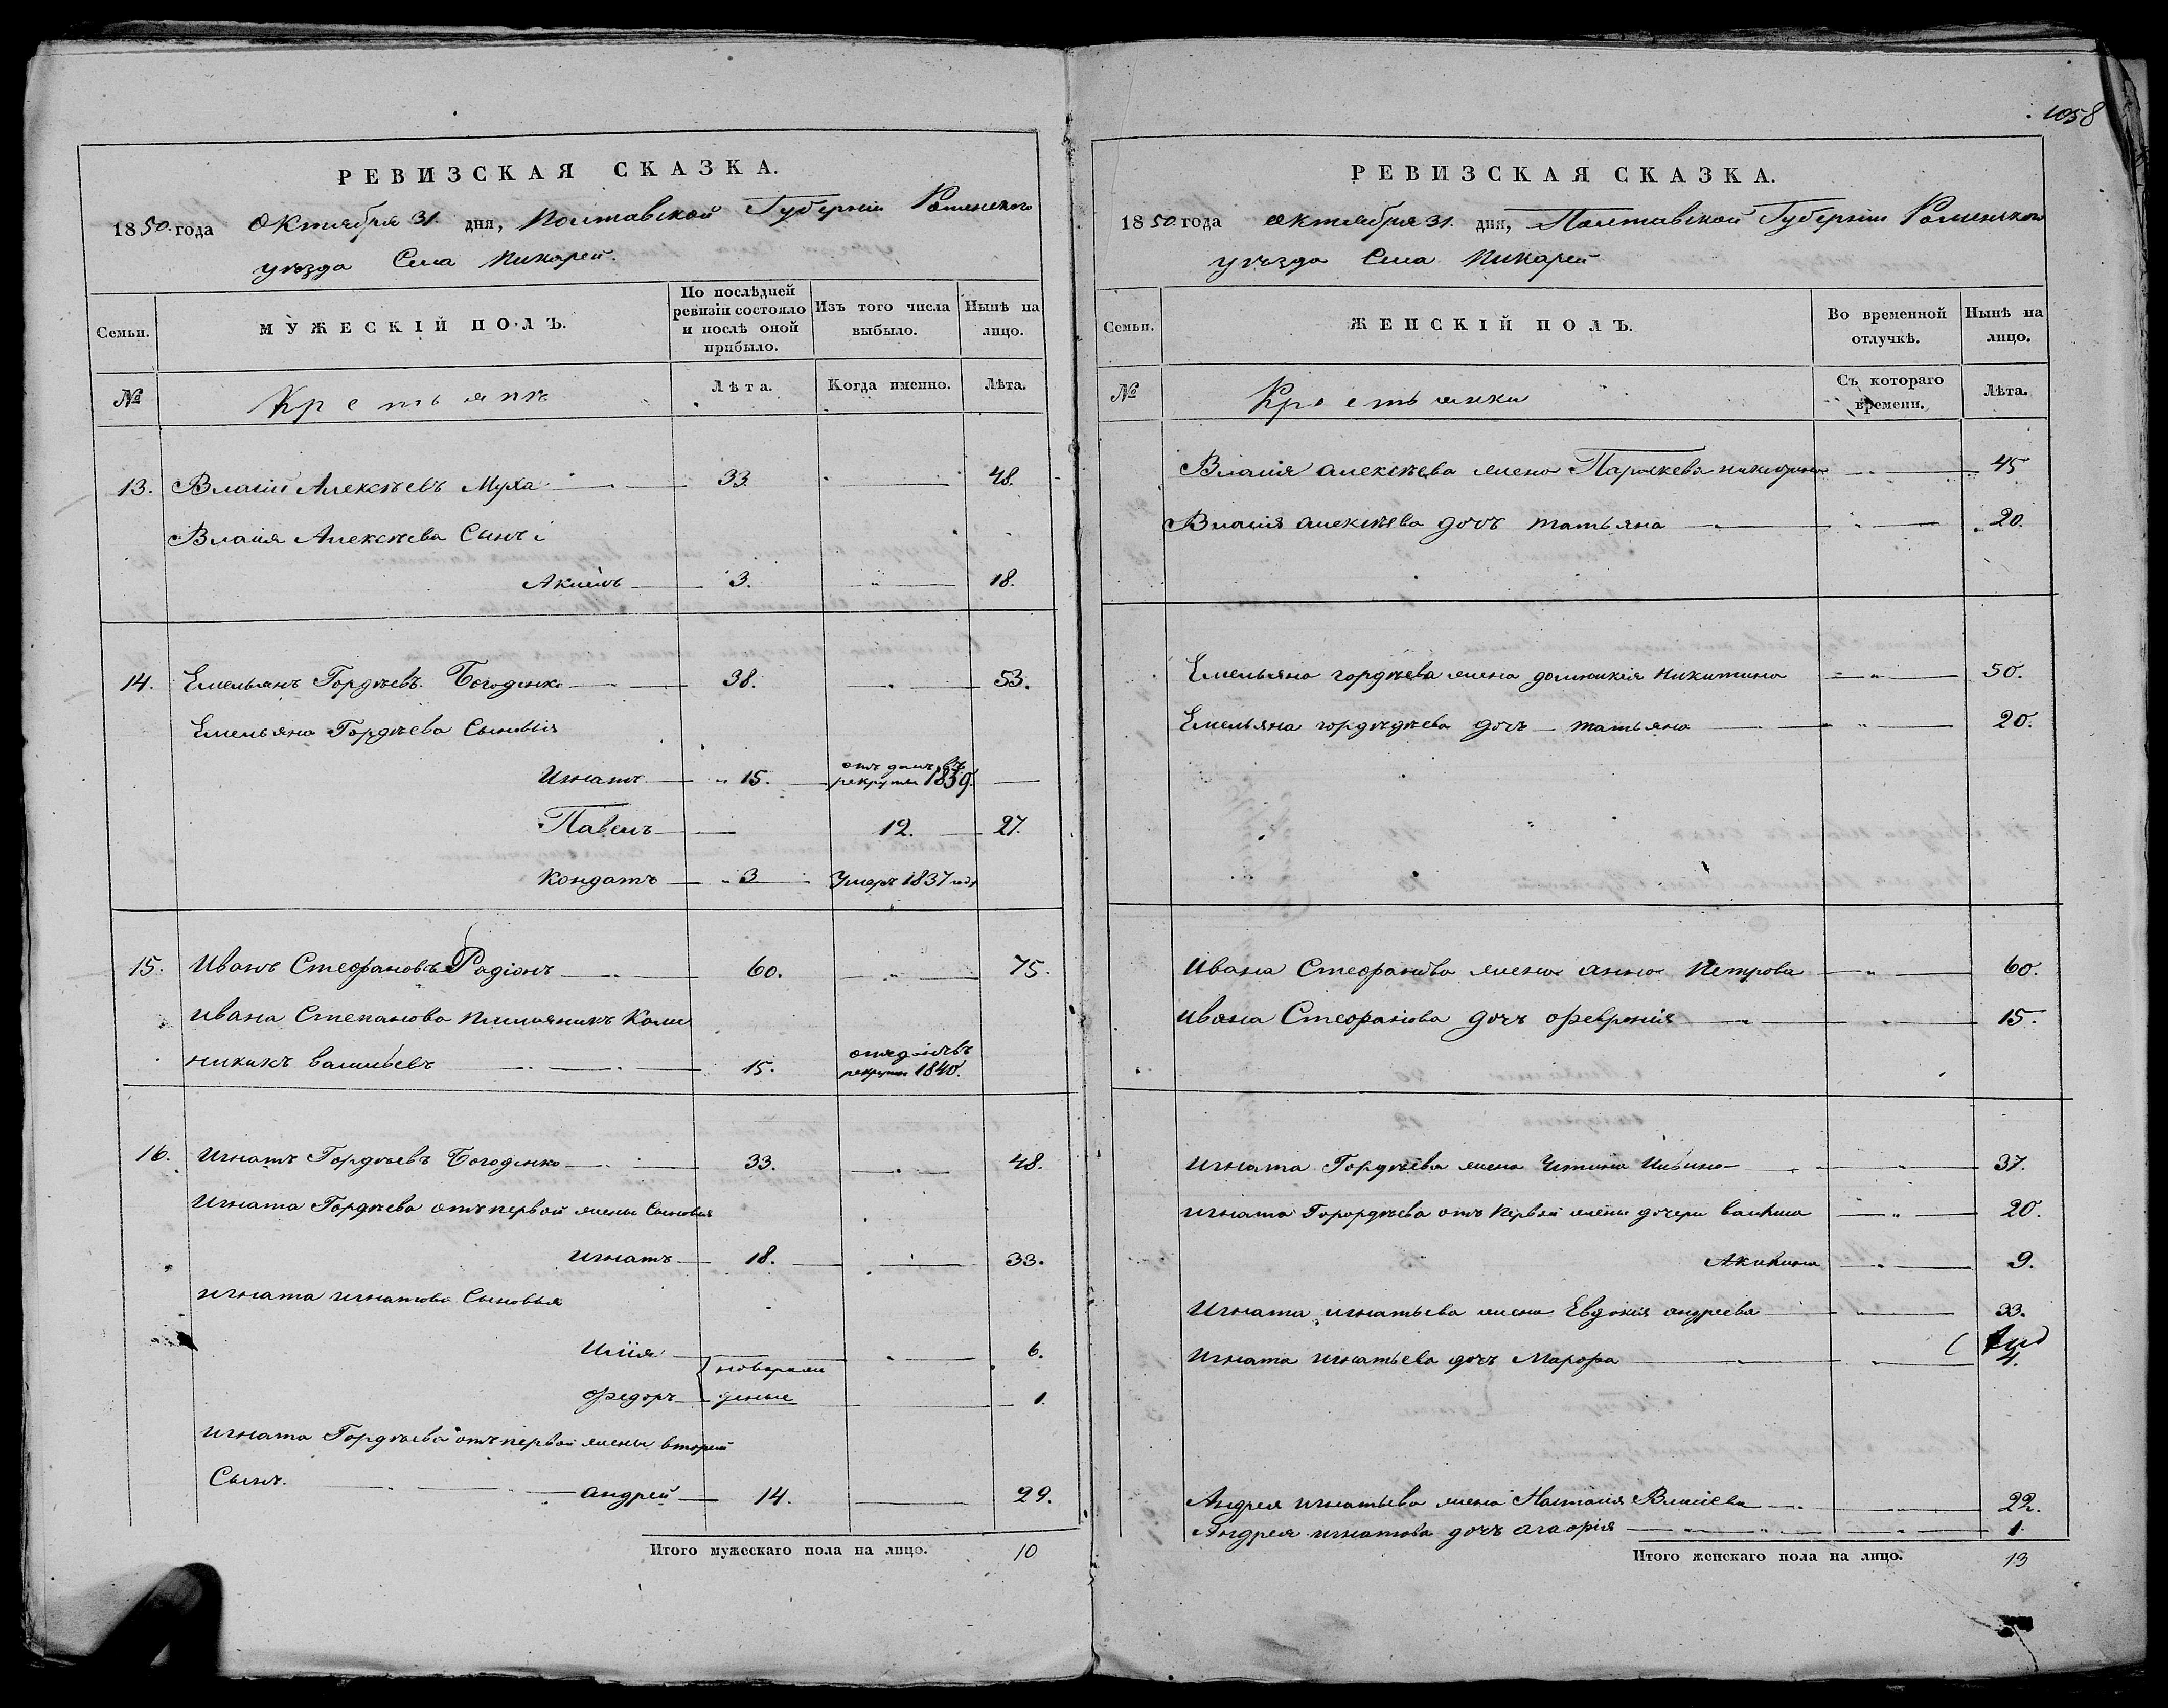 1058
РЕВИЗСКАЯ СКАЗКА.
1850 года Октября 31. дня, Полтавской Губерніи Роменского
уѣзда Села Пикарей.
Семьи. МУЖЕСКІЙ ПОЛЪ. По послѣдней ревизіи состояло и послѣ оной прибыло. Изъ того числа выбыло. Нынѣ на лицо.
№ Крестьянъ Лѣта. Когда именно. Лѣта.
13. Власій Алексѣевъ Муха 33 48.
Власія Алексѣева Сынъ
Акимъ 3. 18.
14. Емельянъ Гордѣевъ Богоденко 38. 53.
Емельяна Гордѣева Сыновья
Игнатъ 15. отъданъ въ рекруты 1839.
Павелъ 12. 27.
Кондатъ 3 Умеръ 1837 году
15. Иванъ Стефановъ Радіонъ 60. 75.
Ивана Степанова
Васильевъ 15. отъданъ въ рекруты 1840.
16. Игнатъ Гордѣевъ Богоденко 33. 48.
Игната Гордѣева отъ первой жены Сыновья
Игнатъ 18. 33.
Игната Игнатова Сыновья
Илія новорож 6.
Федоръ деные 1.
Игната Гордѣева отъ первой жены вторый
Сынъ. Андрей 14. 29.
Итого мужескаго пола на лицо. 10
РЕВИЗСКАЯ СКАЗКА.
1850 года октября 31. дня, Полтавской Губерніи Роменского
уѣзда Села Пикарей
Семьи. ЖЕНСКІЙ ПОЛЪ. Во временной отлучкѣ. Нынѣ на лицо.
№ Крестьянки Съ котораго времени. Лѣта.
Власія алексѣева жена Параскева никитина 45
Власія алексѣева дочъ татьяна 20.
Емельяна гордѣева жена домникія Никитина 50.
Емельяна гордѣдѣева дочъ татьяна 20.
Ивана Стефанова жена анна Петрова 60.
Ивана Стефанова дочъ февронія 15.
Игната Гордѣева жена 37.
Игната Горордѣева отъ Первой жены дочери 20.
Акилина 9.
Игната игнатьева жена Евдокія андреева 33.
Игната игнатьева дочъ Марфа 4.
Андрея игнатьева жена Наталія Власіева 22.
Андрея игнатова дочъ агафія 1.
Итого женскаго пола на лицо. 13